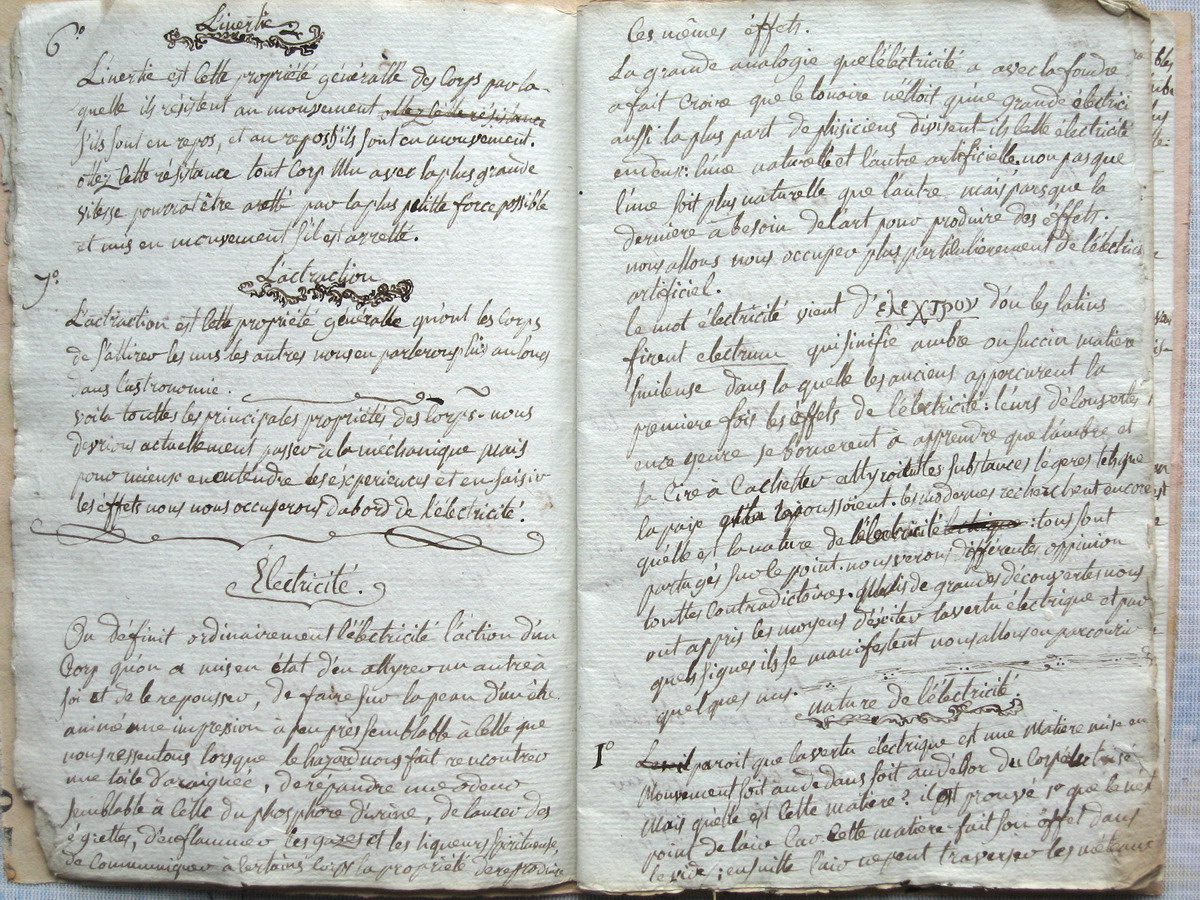 6° L'inertie
L'inertie est cette propriété généralle des Corps par la-
quelle ils résistent au mouvement ottez cette résistance
s'ils sont en repos, et au repos s'ils sont en mouvement.
ottez cette résistance tout Corp Mu avec la plus grande
vitesse pourrat être aretté par la plus petitte force possible
et mis en mouvement s'il est arretté.
7° L'actraction
L'actraction est cette propriété généralle qu'ont les Corps
de s'attirer les uns les autres nous en parlerons plus au long
dans l'astronomie.
voila touttes les principales propriétés des Corps. nous
devrions actuellement passer à la méchanique mais
pour mieux en entendre les éxperiences et en saisir
les éffets nous nous occuperons d'abord de l'électricité.
Électricité.
On définit ordinairement l'électricité l'action d'un
Corp qu'on a mis en état d'en attyrer un autre à
soi et de le repousser, de faire sur la peau d'un être
animé une impression à peu près semblable à celle que
nous ressentons lorsque le hazard nous fait rencontrer
une toile d'araignée, de répandre une odeur
semblable à celle du phosphore d'urine, de lancer des
égrettes, d'enflammer les gazes et les liqueurs spiritueuse,
de Communiquer à certains Corps la propriété de reproduire
Ces mêmes éffets.
La grande analogie que l'électricité a avec la foudre
a fait croire que le tonaire n'étoit qu'une grande électrici
aussi la plus part de phisiciens divisent ils cette électricité
en deux: l'une naturelle et l'autre artificielle. non pas que
l'une soit plus naturelle que l'autre mais parsque la
derniere a besoin de l'art pour produire des éffets.
nous allons nous occuper plus particulierement de l'électric
artificiel.
le mot électricité vient d'ελεχτρον d'ou les latins
firent electrum qui sinifie ambre ou succin matiere
huileuse dans la quelle les anciens appercurent la
premiere fois les éffets de l'électricité: leurs découvertes
en ce genre se bornerent à apprendre que l'ambre et
la Cire à Cachetter attyroit les substances légeres tels que
la paje et les repoussoient. les modernes recherchent encore
quélle est la nature de l'électricité : tous sont
partagés sur le point. nous verons différentes oppinion
touttes Contradictoires. Mais de grandes découvertes nous
ont appris les moyens d'exciter la vertu électrique et par
quels signes ils se manifestent nous allons en parcourir
quelques uns.
nature de l'électricité.
I° paroit que la vertu électrique est une Matiere mise en
Mouvement soit au dedans soit au déhor du Corp électrisé
Mais quélle est Cette matiere? il est prouvé 1° que le n'ést
point de l'air Car Cette matiere fait son éffet dans
le vide; ensuitte l'air ne peut traverser les métaux